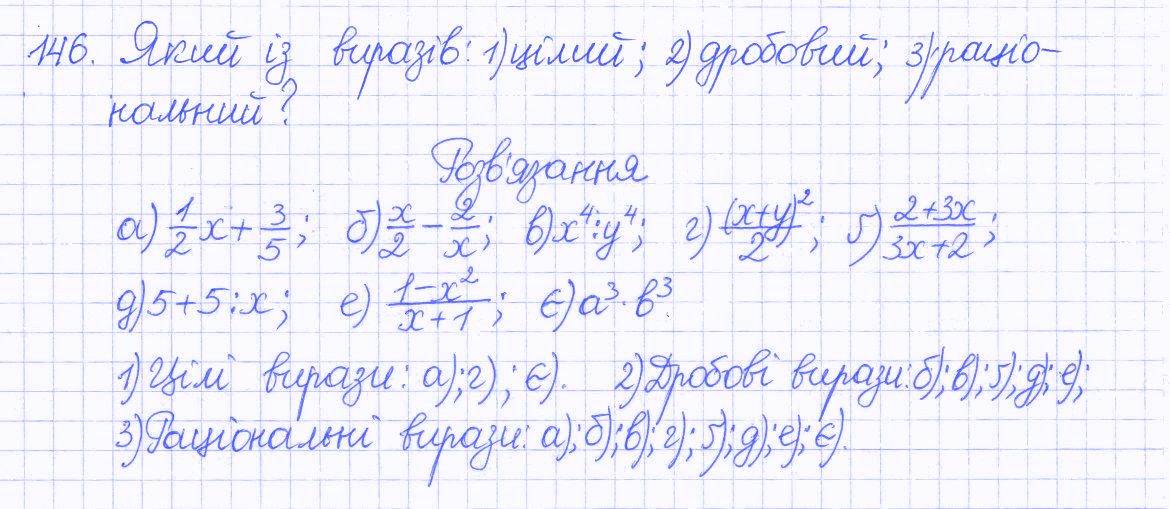 146. Який із виразів: 1) цілий; 2) дробовий; 3) раціо-
нальний?
Розв'язання
а) 1/2 x + 3/5; б) x/2 - 2/x; в) x⁴:y⁴; г) (x+y)²/2; ґ) 2+3x/3x+2;
д) 5+5:x; е) 1-x²/x+1; є) a³·b³
1) Цілі вирази: а); г); є). 2) Дробові вирази: б); в); ґ); д); е);
3) Раціональні вирази: а); б); в); г); ґ); д); е); є).